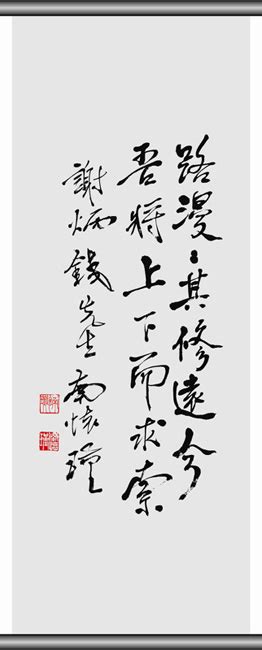 路漫々其修遠兮
吾將上下而求索
謝炳錢先生 南懷瑾